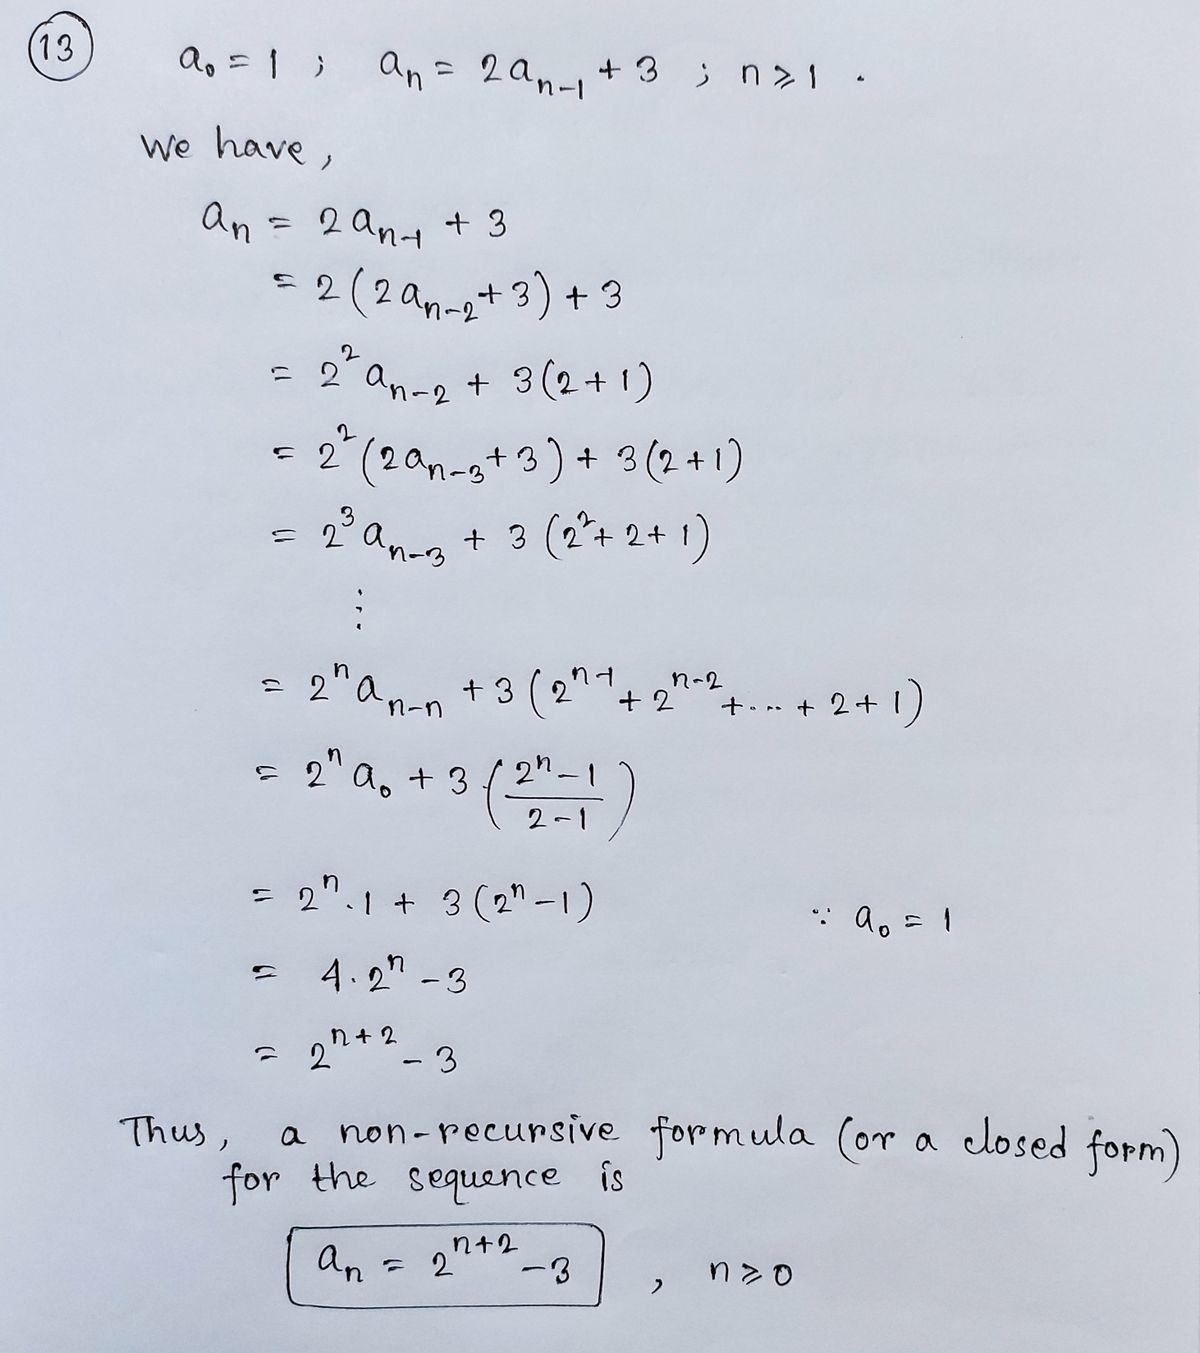 13 a₀ = 1 ; aₙ = 2aₙ₋₁ + 3 ; n ≥ 1 .
We have,
aₙ = 2aₙ₋₁ + 3
= 2(2aₙ₋₂ + 3) + 3
= 2² aₙ₋₂ + 3(2+1)
= 2² (2aₙ₋₃ + 3) + 3(2+1)
= 2³ aₙ₋₃ + 3 (2² + 2 + 1)
⋮
= 2ⁿ aₙ₋ₙ + 3 (2ⁿ⁻¹ + 2ⁿ⁻² + ... + 2 + 1)
= 2ⁿ a₀ + 3 ((2ⁿ - 1)/(2 - 1))
= 2ⁿ . 1 + 3 (2ⁿ - 1) ∵ a₀ = 1
= 4 . 2ⁿ - 3
= 2ⁿ⁺² - 3
Thus, a non-recursive formula (or a closed form)
for the sequence is
aₙ = 2ⁿ⁺² - 3 , n ≥ 0